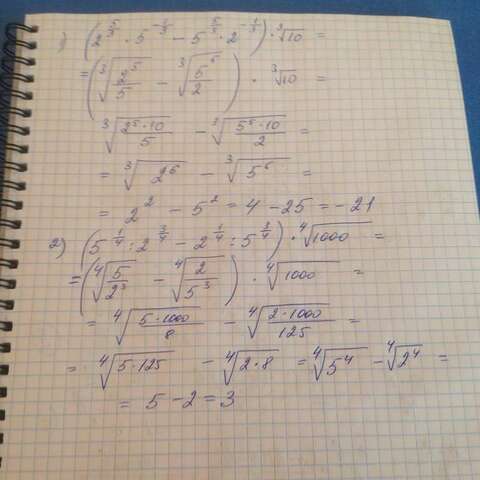 1) (2^{5/3} · 5^{-1/3} - 5^{5/3} · 2^{-1/3}) · ∛10 =
= (∛(2^5/5) - ∛(5^5/2)) · ∛10 =
∛(2^5·10/5) - ∛(5^5·10/2) =
= ∛(2^6) - ∛(5^6) =
= 2^2 - 5^2 = 4 - 25 = -21
2) (5^{1/4} : 2^{3/4} - 2^{1/4} : 5^{3/4}) · ∜1000 =
= (∜(5/2^3) - ∜(2/5^3)) · ∜1000 =
= ∜(5·1000/8) - ∜(2·1000/125) =
= ∜(5·125) - ∜(2·8) = ∜(5^4) - ∜(2^4) =
= 5 - 2 = 3